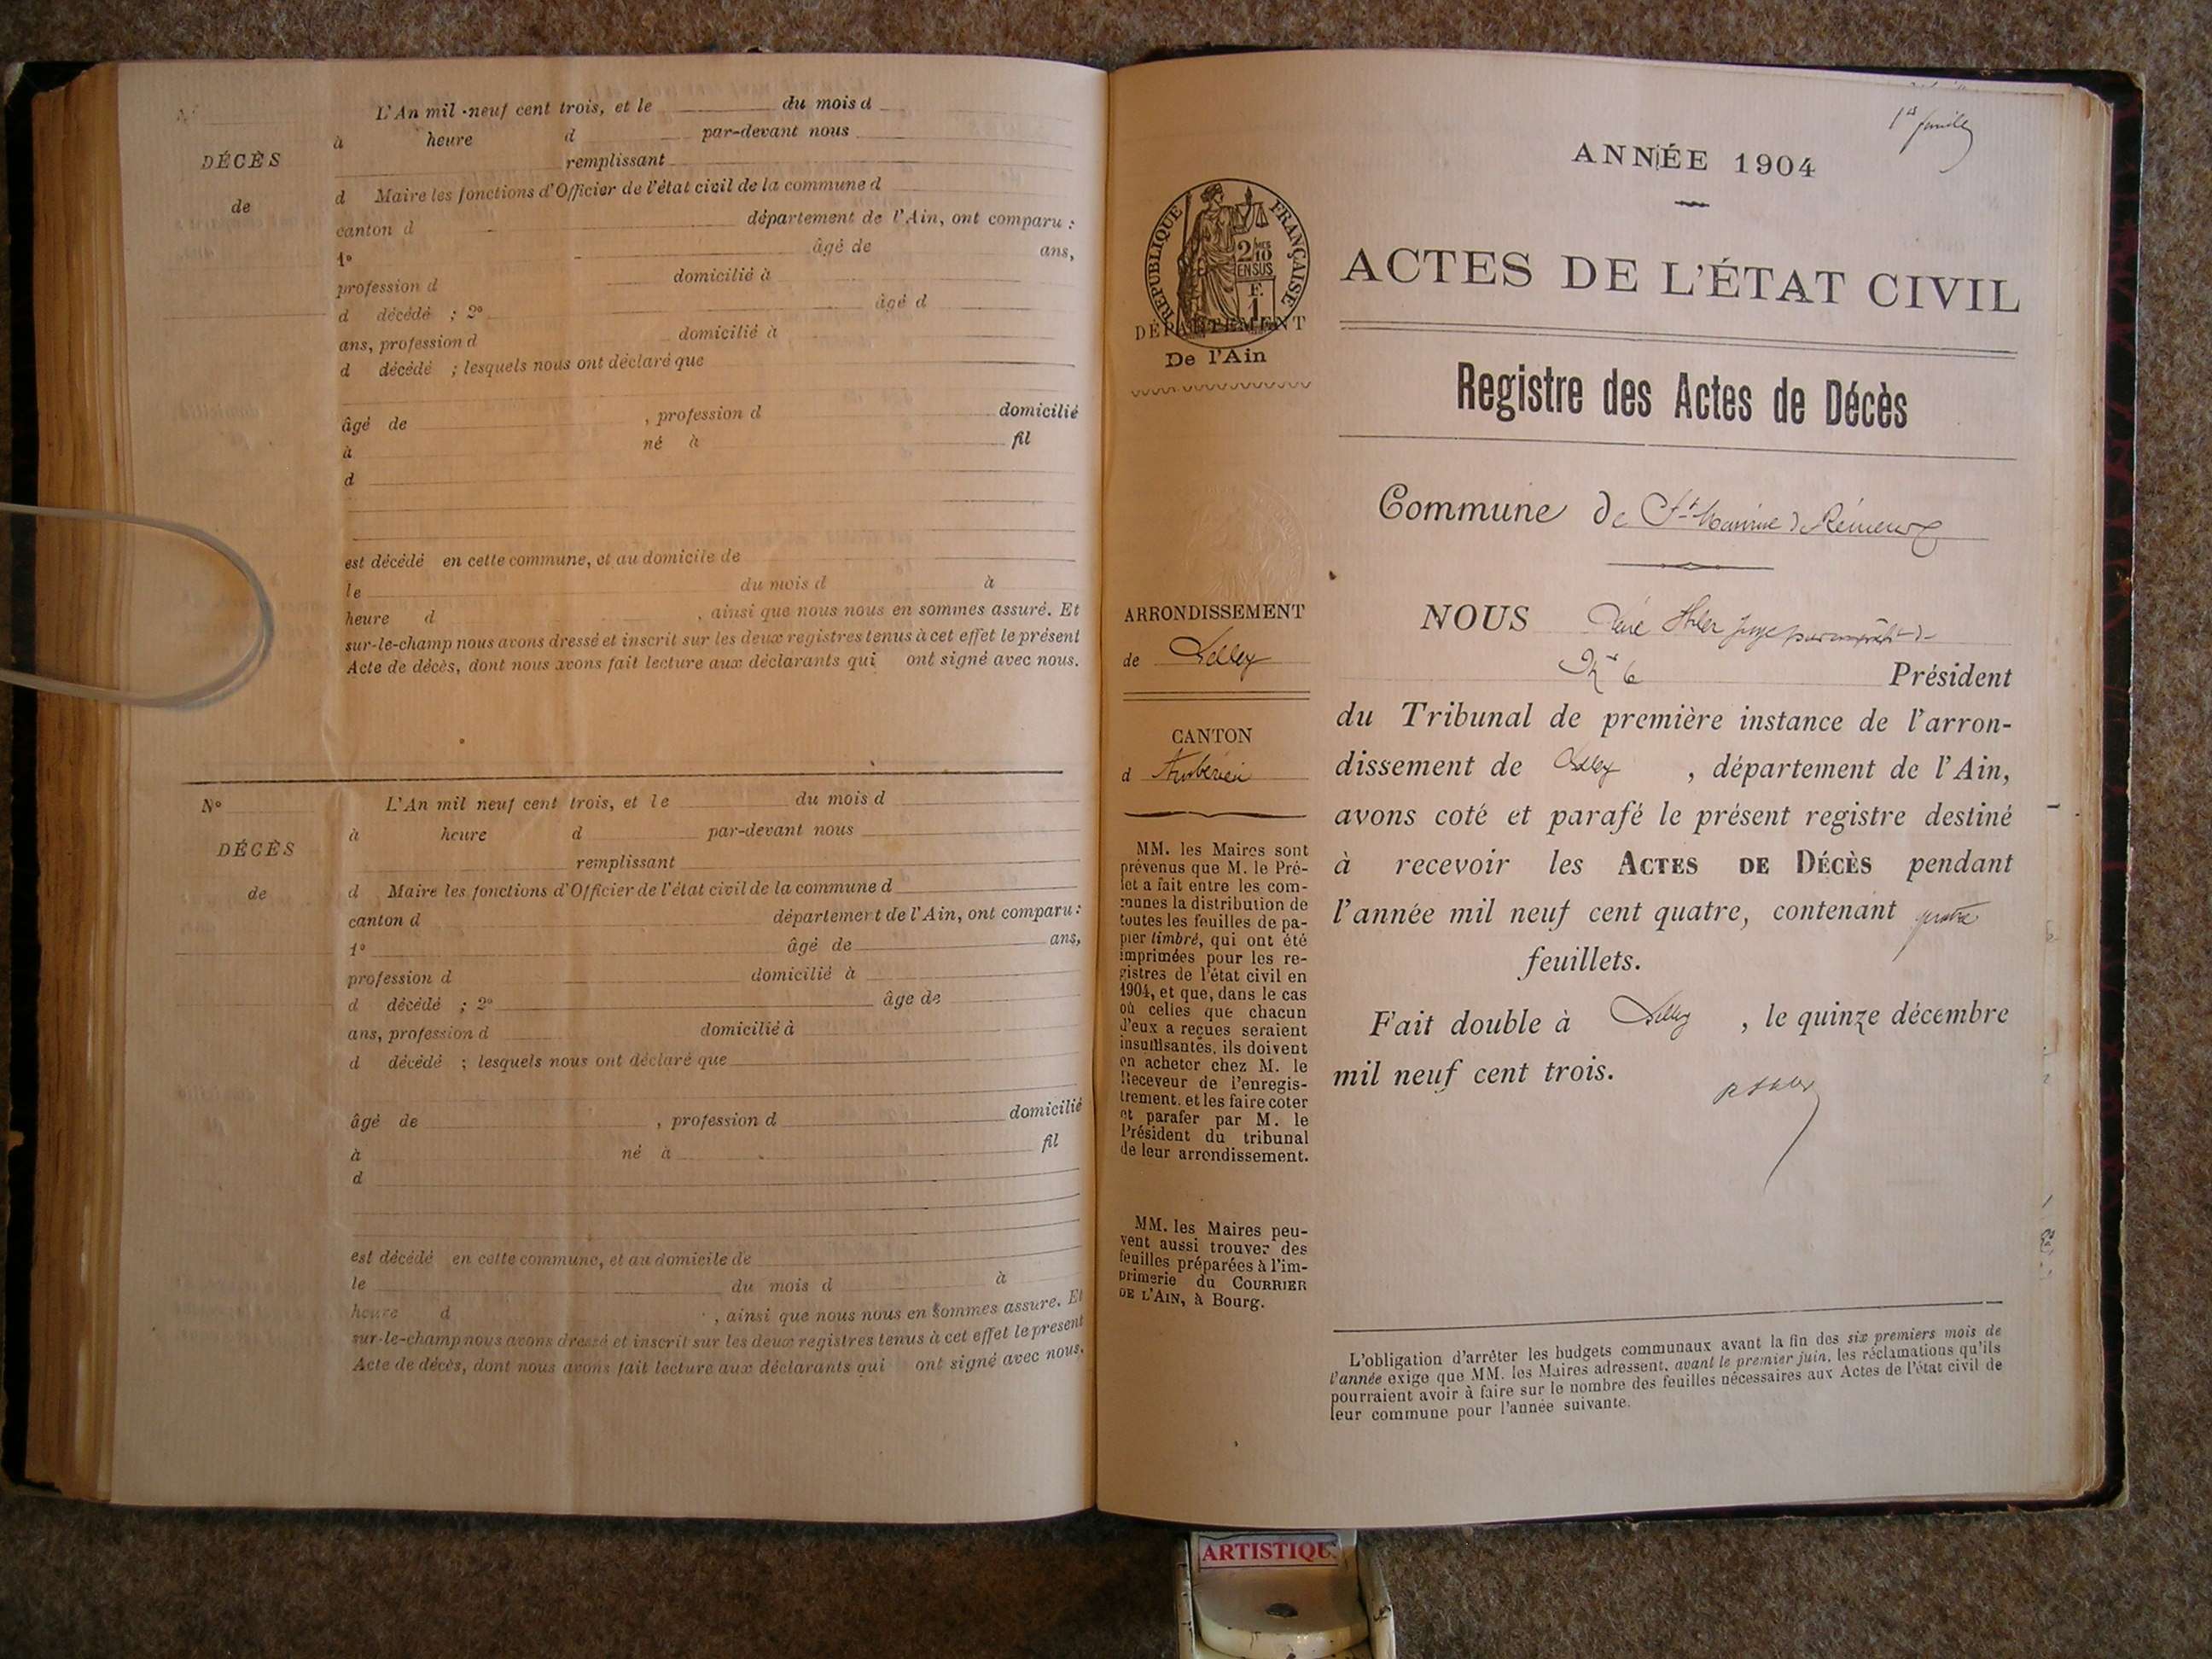 L'An mil-neuf cent trois, et le du mois d
à heure d par-devant nous
DÉCÈS
remplissant
de
d Maire les fonctions d'Officier de l'état civil de la commune d
canton d département de l'Ain, ont comparu :
1º âgé de ans,
profession d domicilié à
d décédé ; 2º âgé d
ans, profession d domicilié à
d décédé ; lesquels nous ont déclaré que
âgé de , profession d domicilié
à né à fil
d
est décédé en cette commune, et au domicile de
le du mois d à
heure d , ainsi que nous nous en sommes assuré. Et
sur-le-champ nous avons dressé et inscrit sur les deux registres tenus à cet effet le présent
Acte de décès, dont nous avons fait lecture aux déclarants qui ont signé avec nous.
Nº L'An mil neuf cent trois, et le du mois d
à heure d par-devant nous
DÉCÈS
remplissant
de
d Maire les fonctions d'Officier de l'état civil de la commune d
canton d département de l'Ain, ont comparu :
1º âgé de ans,
profession d domicilié à
d décédé ; 2º âge de
ans, profession d domicilié à
d décédé ; lesquels nous ont déclaré que
âgé de , profession d domicilié
à né à fil
d
est décédé en cette commune, et au domicile de
le du mois d à
heure d , ainsi que nous nous en sommes assure. Et
sur-le-champ nous avons dressé et inscrit sur les deux registres tenus à cet effet le présent
Acte de décès, dont nous avons fait lecture aux déclarants qui ont signé avec nous.
ANNÉE 1904
RÉPUBLIQUE FRANÇAISE
2/10
EN SUS
F.
1
DÉPARTEMENT
De l'Ain
ARRONDISSEMENT
de Belley
CANTON
d Ambérieu
MM. les Maires sont
prévenus que M. le Pré-
fet a fait entre les com-
munes la distribution de
toutes les feuilles de pa-
pier timbré, qui ont été
imprimées pour les re-
gistres de l'état civil en
1904, et que, dans le cas
où celles que chacun
d'eux a reçues seraient
insuffisantes, ils doivent
en acheter chez M. le
Receveur de l'enregis-
trement, et les faire coter
et parafer par M. le
Président du tribunal
de leur arrondissement.
MM. les Maires peu-
vent aussi trouver des
feuilles préparées à l'im-
primerie du COURRIER
DE L'AIN, à Bourg.
ACTES DE L'ÉTAT CIVIL
Registre des Actes de Décès
Commune de St
NOUS René
Président
du Tribunal de première instance de l'arron-
dissement de Belley , département de l'Ain,
avons coté et parafé le présent registre destiné
à recevoir les ACTES DE DÉCÈS pendant
l'année mil neuf cent quatre, contenant quatre
feuillets.
Fait double à Belley , le quinze décembre
mil neuf cent trois.
L'obligation d'arrêter les budgets communaux avant la fin des six premiers mois de
l'année exige que MM. les Maires adressent, avant le premier juin, les réclamations qu'ils
pourraient avoir à faire sur le nombre des feuilles nécessaires aux Actes de l'état civil de
leur commune pour l'année suivante.
ARTISTIQU